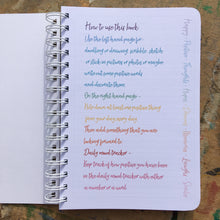 How to use this book
Use the left hand page for
doodling or drawing, scribble, sketch
or stick on pictures or photos, or maybe
write out some positive words
and decorate them.
On the right hand page -
Note down at least one positive thing
from your day, every day.
Then add something that you are
looking forward to.
Daily mood tracker -
Keep track of how positive you have been
in the daily mood tracker with either
a number or a word.
Happy Positive Thoughts Hope
Laughs Smile